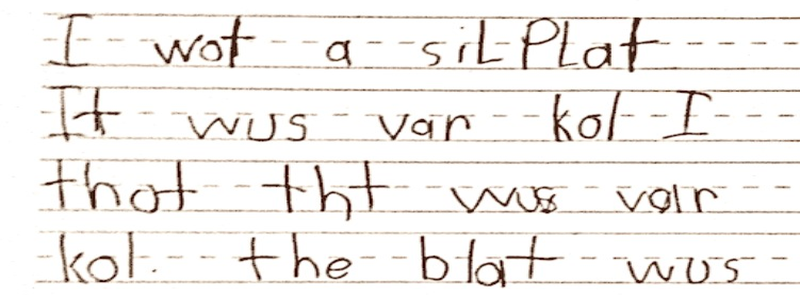 I wot a silPLat
It wus var kol I
thot tht wus vair
kol. the blat wus